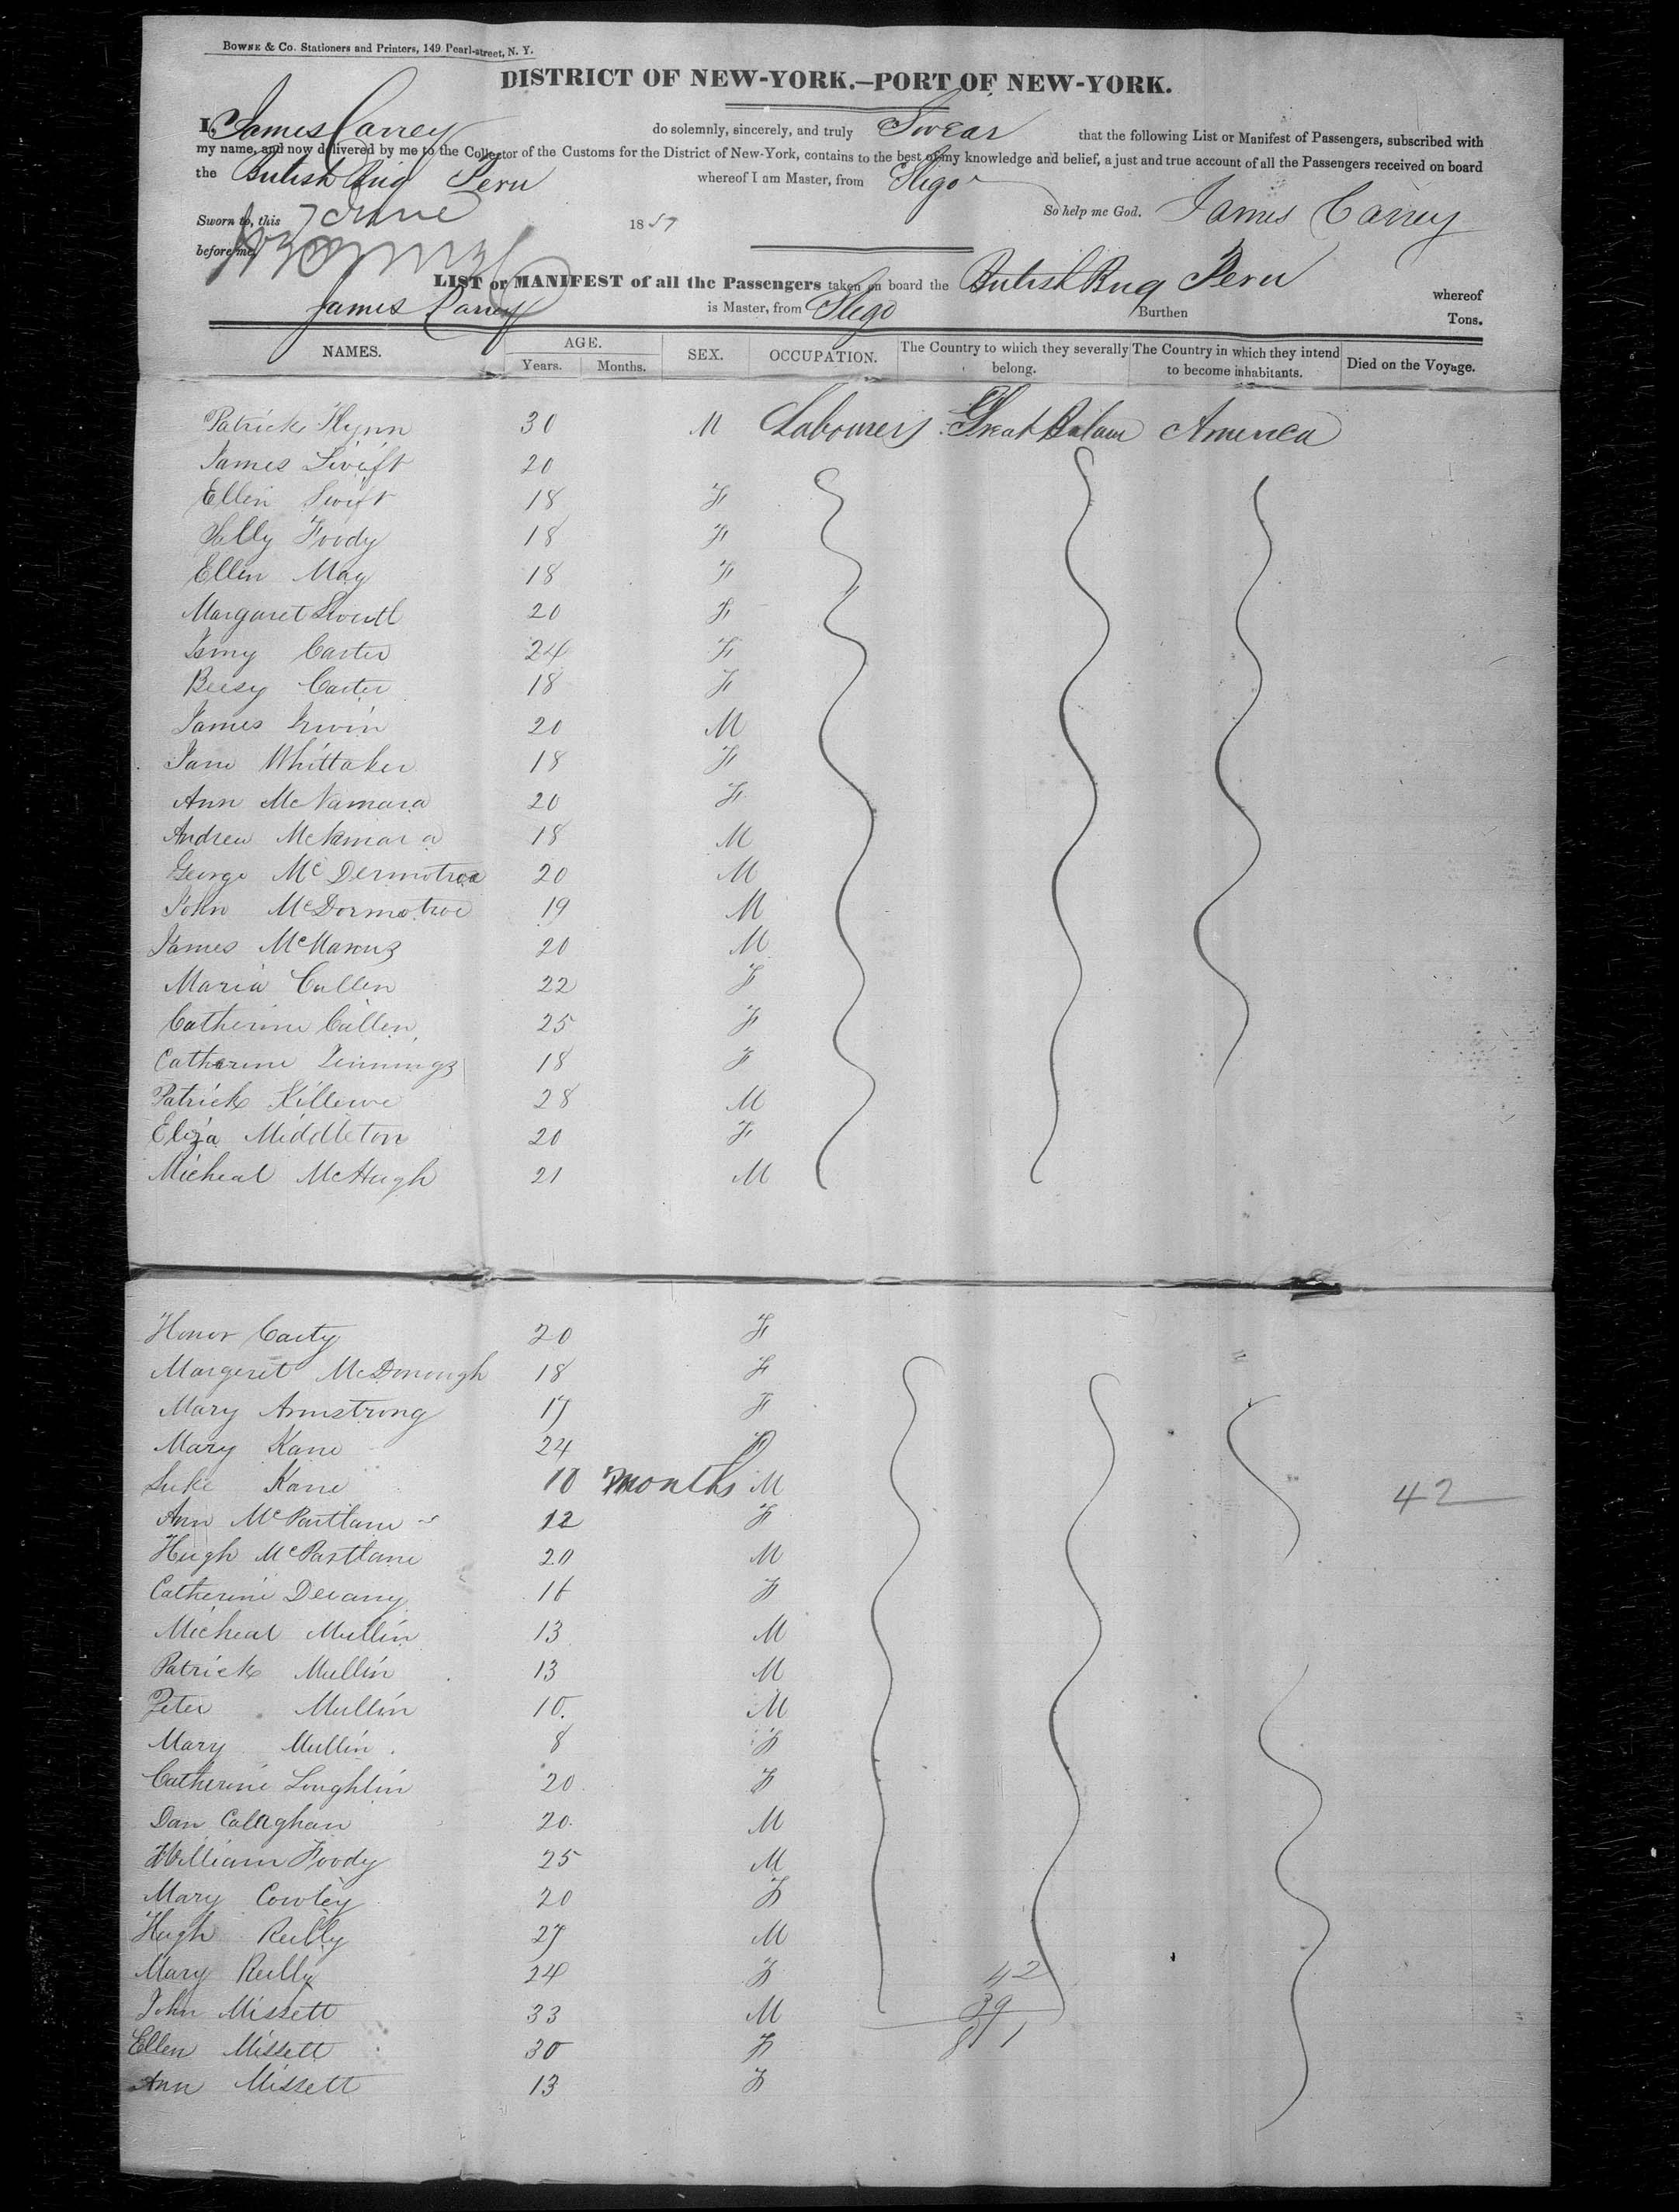 BOWNE & Co. Stationers and Printers, 149 Pearl-street, N. Y.
DISTRICT OF NEW-YORK.—PORT OF NEW-YORK.
I, James Carrey do solemnly, sincerely, and truly Swear that the following List or Manifest of Passengers, subscribed with
my name, and now delivered by me to the Collector of the Customs for the District of New-York, contains to the best of my knowledge and belief, a just and true account of all the Passengers received on board
the British Brig Peru whereof I am Master, from Sligo
So help me God. James Carrey
Sworn to, this 7 June 1857
before me,
LIST or MANIFEST of all the Passengers taken on board the British Brig Peru whereof
James Carrey is Master, from Sligo Burthen Tons.
NAMES. AGE. Years. Months. SEX. OCCUPATION. The Country to which they severally belong. The Country in which they intend to become inhabitants. Died on the Voyage.
Patrick Flynn 30 M Labourers Great Britain America
James Swift 20
Ellen Swift 18 F
Sally Foody 18 F
Ellen May 18 F
Margaret 20 F
Carter 24 F
Carter 18 F
James Irwin 20 M
Jane Whittaker 18 F
Ann McNamara 20 F
Andrew McNamara 18 M
George McDermotroe 20 M
John McDormotroe 19 M
James McManus 20 M
Maria Cullen 22 F
Catherine Cullen 25 F
Catharine Jennings 18 F
Patrick 28 M
Eliza Middleton 20 F
Micheal McHugh 21 M
Honor Carty 20 F
Margeret McDonough 18 F
Mary Armstrong 17 F
Mary Kane 24 F
Luke Kane 10 months M 42
Ann McPartlane 12 F
Hugh McPartlane 20 M
Catherine 16 F
Micheal Mullin 13 M
Patrick Mullin 13 M
Peter Mullin 10. M
Mary Mullin. 8 F
Catherine Loughlin 20 F
Dan Calaghan 20. M
William Foody 25 M
Mary Cowley 20 F
Hugh Reilly 27 M
Mary Reilly 24 F 42
John Missett 33 M 39
Ellen Missett 30 F 81
Ann Missett 13 F